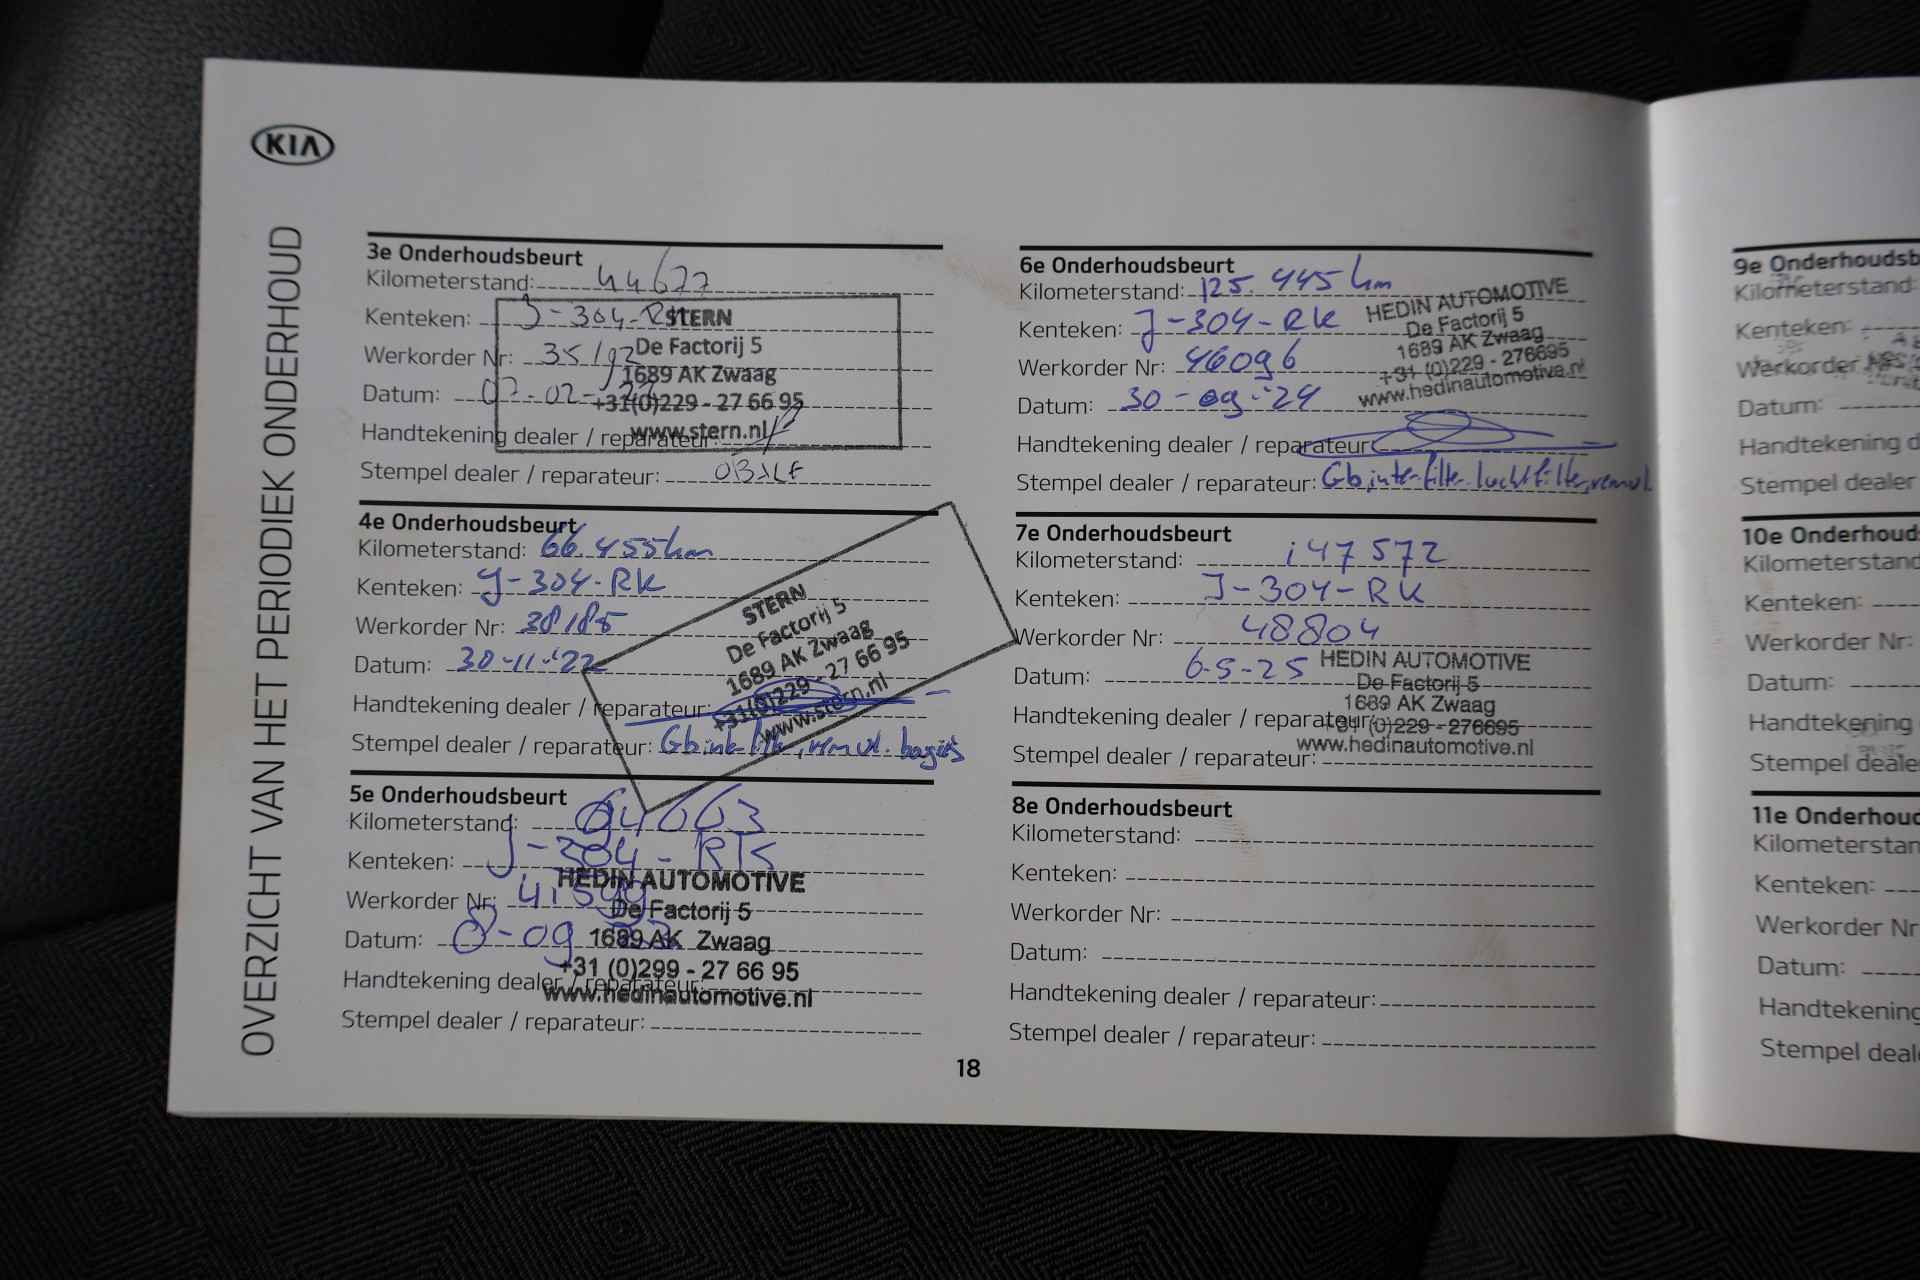 KIA
OVERZICHT VAN HET PERIODIEK ONDERHOUD
3e Onderhoudsbeurt
Kilometerstand: 44677
Kenteken: J-304-RK
Werkorder Nr:
Datum: 07-02-
Handtekening dealer / reparateur:
Stempel dealer / reparateur:
STERN
De Factorij 5
1689 AK Zwaag
+31(0)229 - 27 66 95
www.stern.nl
4e Onderhoudsbeurt
Kilometerstand: 66.455km
Kenteken: J-304-RK
Werkorder Nr: 38185
Datum: 30-11-'22
Handtekening dealer / reparateur:
Stempel dealer / reparateur: Gb,
STERN
De Factorij 5
1689 AK Zwaag
+31(0)229 - 27 66 95
www.stern.nl
5e Onderhoudsbeurt
Kilometerstand: 94663
Kenteken: J-304-RK
Werkorder Nr: 41599
Datum: 8-09
Handtekening dealer / reparateur:
Stempel dealer / reparateur:
HEDIN AUTOMOTIVE
De Factorij 5
1689 AK Zwaag
+31 (0)299 - 27 66 95
www.hedinautomotive.nl
6e Onderhoudsbeurt
Kilometerstand: 125.445km
Kenteken: J-304-RK
Werkorder Nr: 46096
Datum: 30-09-'24
Handtekening dealer / reparateur:
Stempel dealer / reparateur: Gb, interfilter. luchtfilter, remvl.
HEDIN AUTOMOTIVE
De Factorij 5
1689 AK Zwaag
+31 (0)229 - 276695
www.hedinautomotive.nl
7e Onderhoudsbeurt
Kilometerstand: 147572
Kenteken: J-304-RK
Werkorder Nr: 48804
Datum: 6-5-25
Handtekening dealer / reparateur:
Stempel dealer / reparateur:
HEDIN AUTOMOTIVE
De Factorij 5
1689 AK Zwaag
+31 (0)229 - 276695
www.hedinautomotive.nl
8e Onderhoudsbeurt
Kilometerstand:
Kenteken:
Werkorder Nr:
Datum:
Handtekening dealer / reparateur:
Stempel dealer / reparateur:
18
9e Onderhoudsb
Kilometerstand:
Kenteken:
Werkorder
Datum:
Handtekening d
Stempel dealer
10e Onderhoud
Kilometerstand
Kenteken:
Werkorder Nr:
Datum:
Handtekening
Stempel deale
11e Onderhou
Kilometerstan
Kenteken:
Werkorder Nr
Datum:
Handtekening
Stempel deal